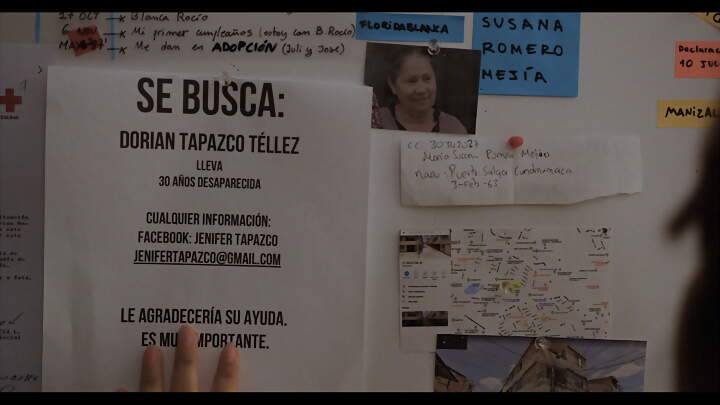 17 OCT → Blanca Rocío
6 NOV → Mi primer cumpleaños (estoy con B. Rocío)
→ Me dan en ADOPCIÓN (Juli y José)
SE BUSCA:
DORIAN TAPAZCO TÉLLEZ
LLEVA
30 AÑOS DESAPARECIDA
CUALQUIER INFORMACIÓN:
FACEBOOK: JENIFER TAPAZCO
JENIFERTAPAZCO@GMAIL.COM
LE AGRADECERÍA SU AYUDA.
ES MUY IMPORTANTE.
FLORIDABLANCA
SUSANA
ROMERO
MEJÍA
María Susana Romero Mejía
Puerto Salgar Cundinamarca
3-Feb-63
Declarac
10 JUL
MANIZAL